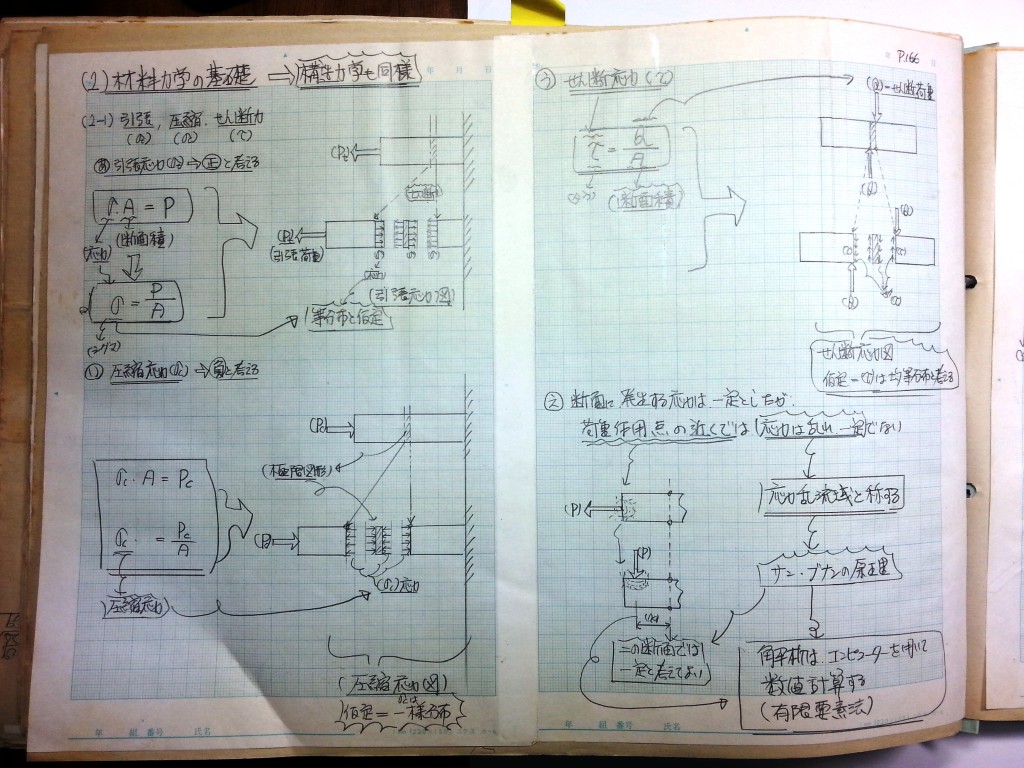 (2) 材料力学の基礎 ⇒ 構造力学も同様
年 月 日
(2-1) 引張, 圧縮, せん断力
(τ)
あ 引張応力 → 正 と考える
σ・A = P
(断面積)
応力
σ = P/A
(シグマ)
切断
引張荷重
(引張応力図)
等分布と仮定
圧縮応力 → 負 と考える
(極限図形)
σc・A = Pc
σc = Pc/A
圧縮応力
(σc)応力
(圧縮応力図)
仮定=一様分布
年 組 番号 氏名
P.166
う せん断応力(τ)
(Q)=せん断荷重
τ = Q/A
(断面積)
せん断応力図
仮定=(τ)は均等分布と考える
え 断面に発生する応力は一定としたが
荷重作用点の近くでは 応力は乱れ一定でない
応力乱流域と称する
(P)
(P)
サン・ブナンの原理
この断面では
一定と考えてよい
角平析は、コンピューターを用いて
数値計算する
(有限要素法)
年 組 番号 氏名